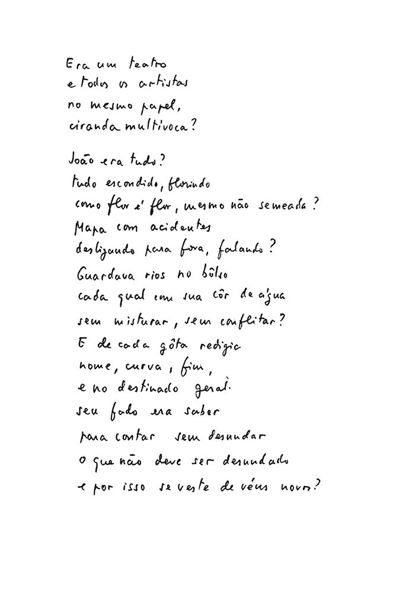 Era um teatro
e todos os artistas
no mesmo papel,
ciranda multívoca?
João era tudo?
tudo escondido, florindo
como flor é flor, mesmo não semeada?
Mapa com acidentes
deslizando para fora, falando?
Guardava rios no bôlso
cada qual com sua côr de água
sem misturar, sem conflitar?
E de cada gôta redigia
nome, curva, fim,
e no destinado geral
seu fado era saber
para contar sem desnudar
o que não deve ser desnudado
e por isso se veste de véus novos?